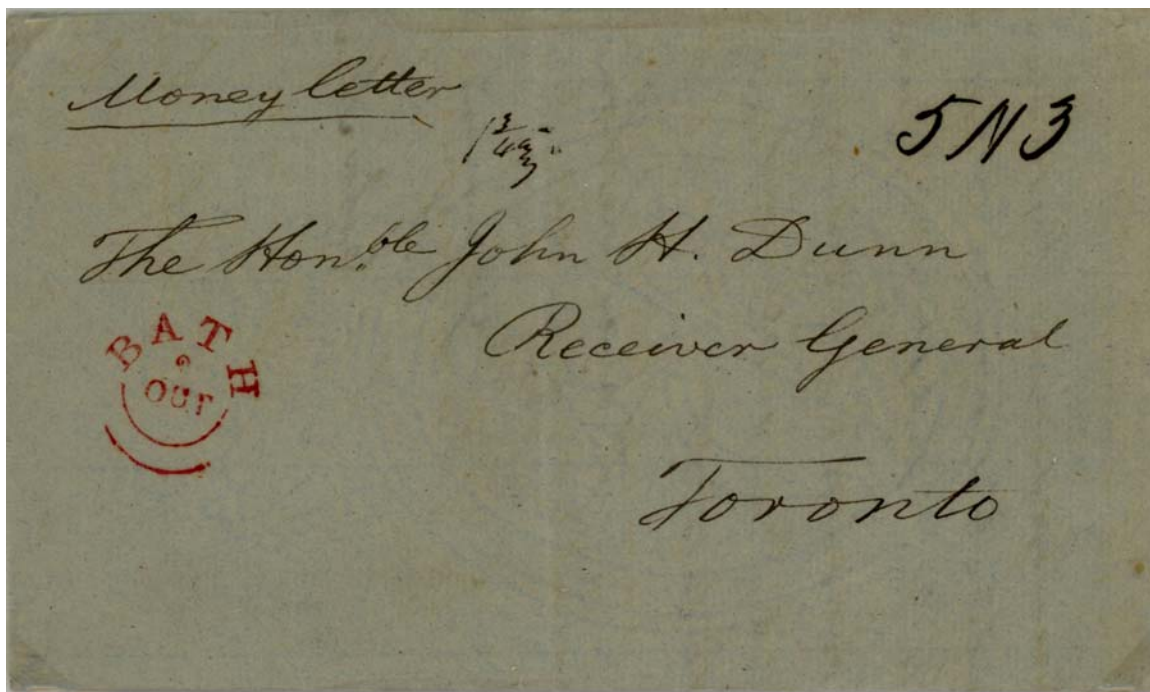 Money letter
5N3
1 3/4 oz
The Hon.ble John H. Dunn
Receiver General
Toronto
BATH
OUT